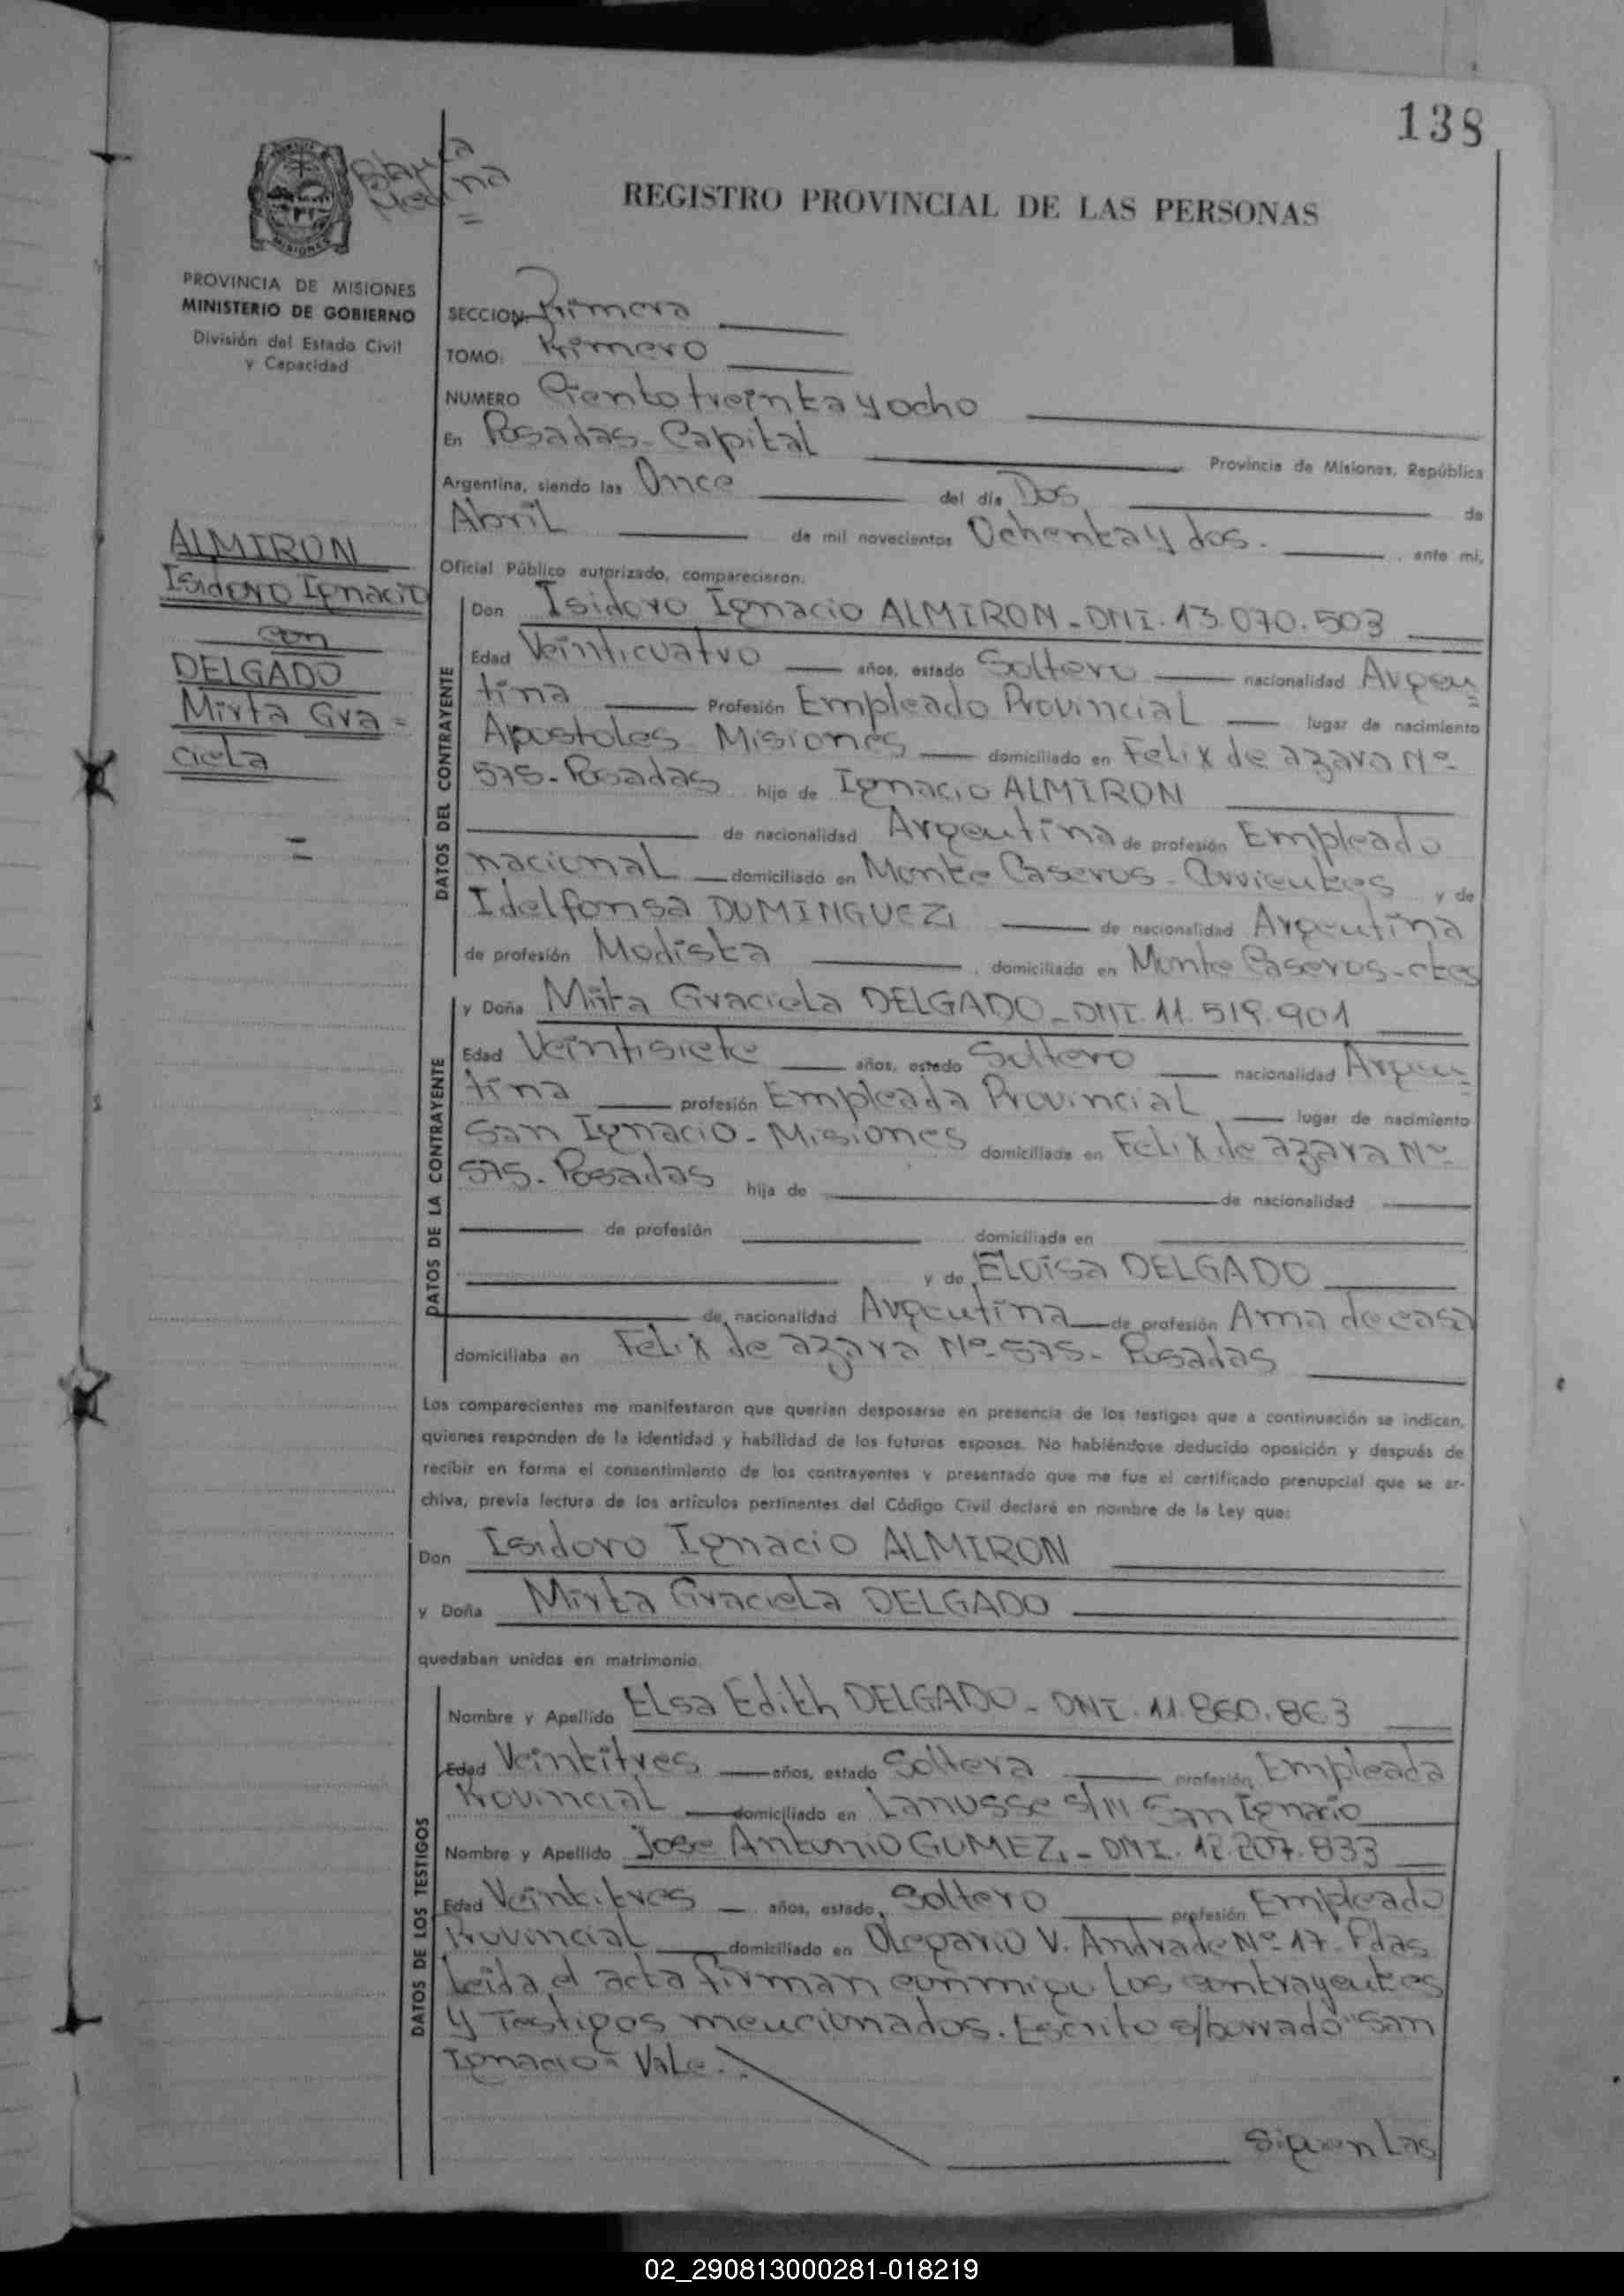 138
Blanca
Medina
=
REGISTRO PROVINCIAL DE LAS PERSONAS
MISIONES
PROVINCIA DE MISIONES
MINISTERIO DE GOBIERNO
División del Estado Civil
y Capacidad
SECCION Primera
TOMO: Primero
NUMERO Ciento treinta y ocho
En Posadas - Capital Provincia de Misiones, República
Argentina, siendo las Once del día Dos de
Abril de mil novecientos Ochenta y dos. , ante mi,
Oficial Público autorizado, comparecieron:
ALMIRON
Isidoro Ignacio
con
DELGADO
Mirta Gra=
ciela
=
DATOS DEL CONTRAYENTE
Don Isidoro Ignacio ALMIRON - DNI. 13.070.503
Edad Veinticuatro años, estado Soltero nacionalidad Argen=
tina Profesión Empleado Provincial lugar de nacimiento
Apostoles Misiones domiciliado en Felix de azara Nº
575 - Posadas hijo de Ignacio ALMIRON
de nacionalidad Argentina de profesión Empleado
nacional domiciliado en Monte Caseros - Corrientes y de
Idelfonsa DOMINGUEZ, de nacionalidad Argentina
de profesión Modista , domiciliado en Monte Caseros - ctes
DATOS DE LA CONTRAYENTE
y Doña Mirta Graciela DELGADO - DNI. 11.519.901
Edad Veintisiete años, estado Soltero nacionalidad Argen=
tina profesión Empleada Provincial lugar de nacimiento
San Ignacio - Misiones domiciliada en Felix de azara Nº
575 - Posadas hija de de nacionalidad
de profesión domiciliada en
y de Eloisa DELGADO
de nacionalidad Argentina de profesión Ama de casa
domiciliaba en Felix de azara Nº 575 - Posadas
Los comparecientes me manifestaron que querían desposarse en presencia de los testigos que a continuación se indican,
quienes responden de la identidad y habilidad de los futuros esposos. No habiéndose deducido oposición y después de
recibir en forma el consentimiento de los contrayentes y presentado que me fue el certificado prenupcial que se ar-
chiva, previa lectura de los artículos pertinentes del Código Civil declaré en nombre de la Ley que:
Don Isidoro Ignacio ALMIRON
y Doña Mirta Graciela DELGADO
quedaban unidos en matrimonio.
DATOS DE LOS TESTIGOS
Nombre y Apellido Elsa Edith DELGADO - DNI. 11.860.863
Edad Veintitres años, estado Soltera profesión Empleada
Provincial domiciliado en Lanusse s/n San Ignacio
Nombre y Apellido Jose Antonio GOMEZ, - DNI. 12.207.833
Edad Veintitres años, estado, Soltero profesión Empleado
Provincial domiciliado en Olegario V. Andrade Nº 17. Pdas
Leida el acta firman conmigo los contrayentes
y Testigos mencionados. Escrito s/borrado "San
Ignacio" Vale.
Siguen Las
02_290813000281-018219